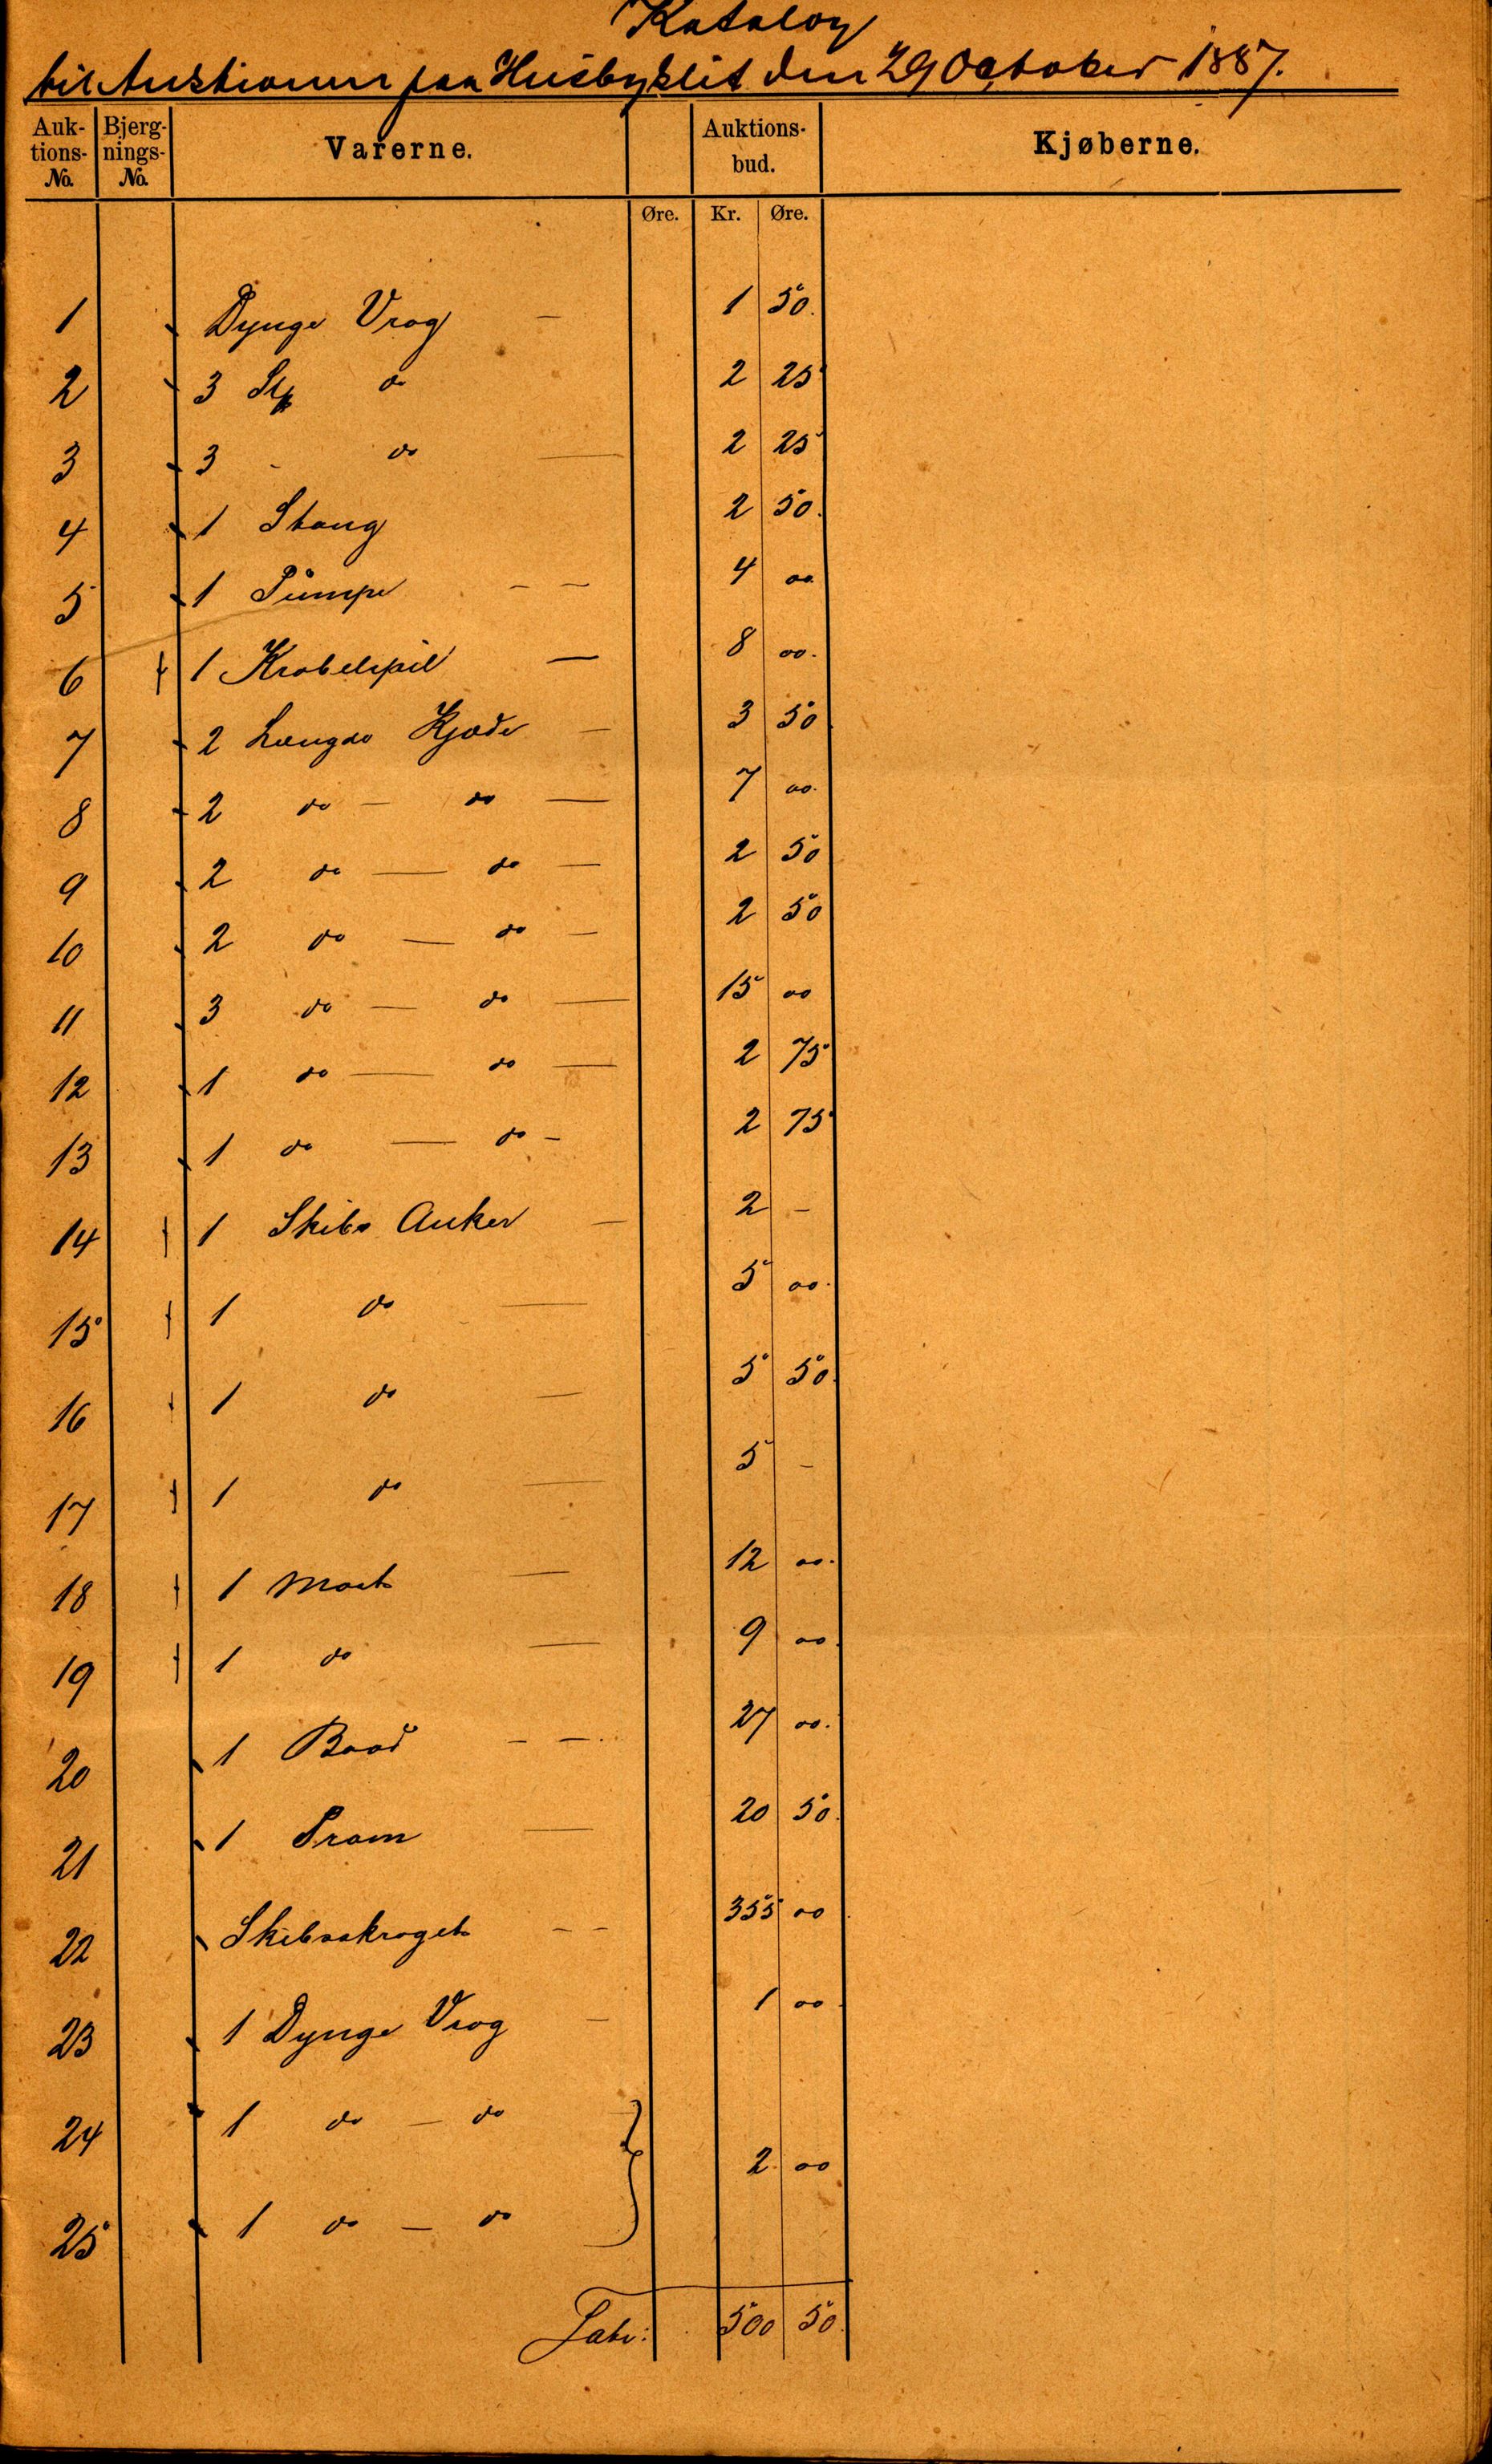 Katalog
til Auktionen paa Husbyklit den 29 October 1887.
Auk- tions- No. Bjerg- nings- No. Varerne. Auktions- bud. Kjøberne.
Øre. Kr. Øre.
1 Dynge Vrag — 1 50.
2 3 Stk do 2 25
3 3 - do — 2 25
4 1 Stang 2 50.
5 1 Pumpe — — 4 00
6 1 Krabelspil — 8 00.
7 2 Længder Kjæde — 3 50
8 2 do — do — 7 00.
9 2 do — do — 2 50
10 2 do — do — 2 50
11 3 do — do — 15 00
12 1 do — do — 2 75
13 1 do — do — 2 75
14 1 Skibs Anker — 2 -
15 1 do — 5 00.
16 1 do — 5 50.
17 1 do — 5 -
18 1 Mast — 12 00.
19 1 do — 9 00.
20 1 Baad — —. 27 00.
21 1 Pram — 20 50.
22 Skibsskroget — — 355 00.
23 1 Dynge Vrag — 1 00.
24 1 do — do
2 00
25 1 do — do
500 50.